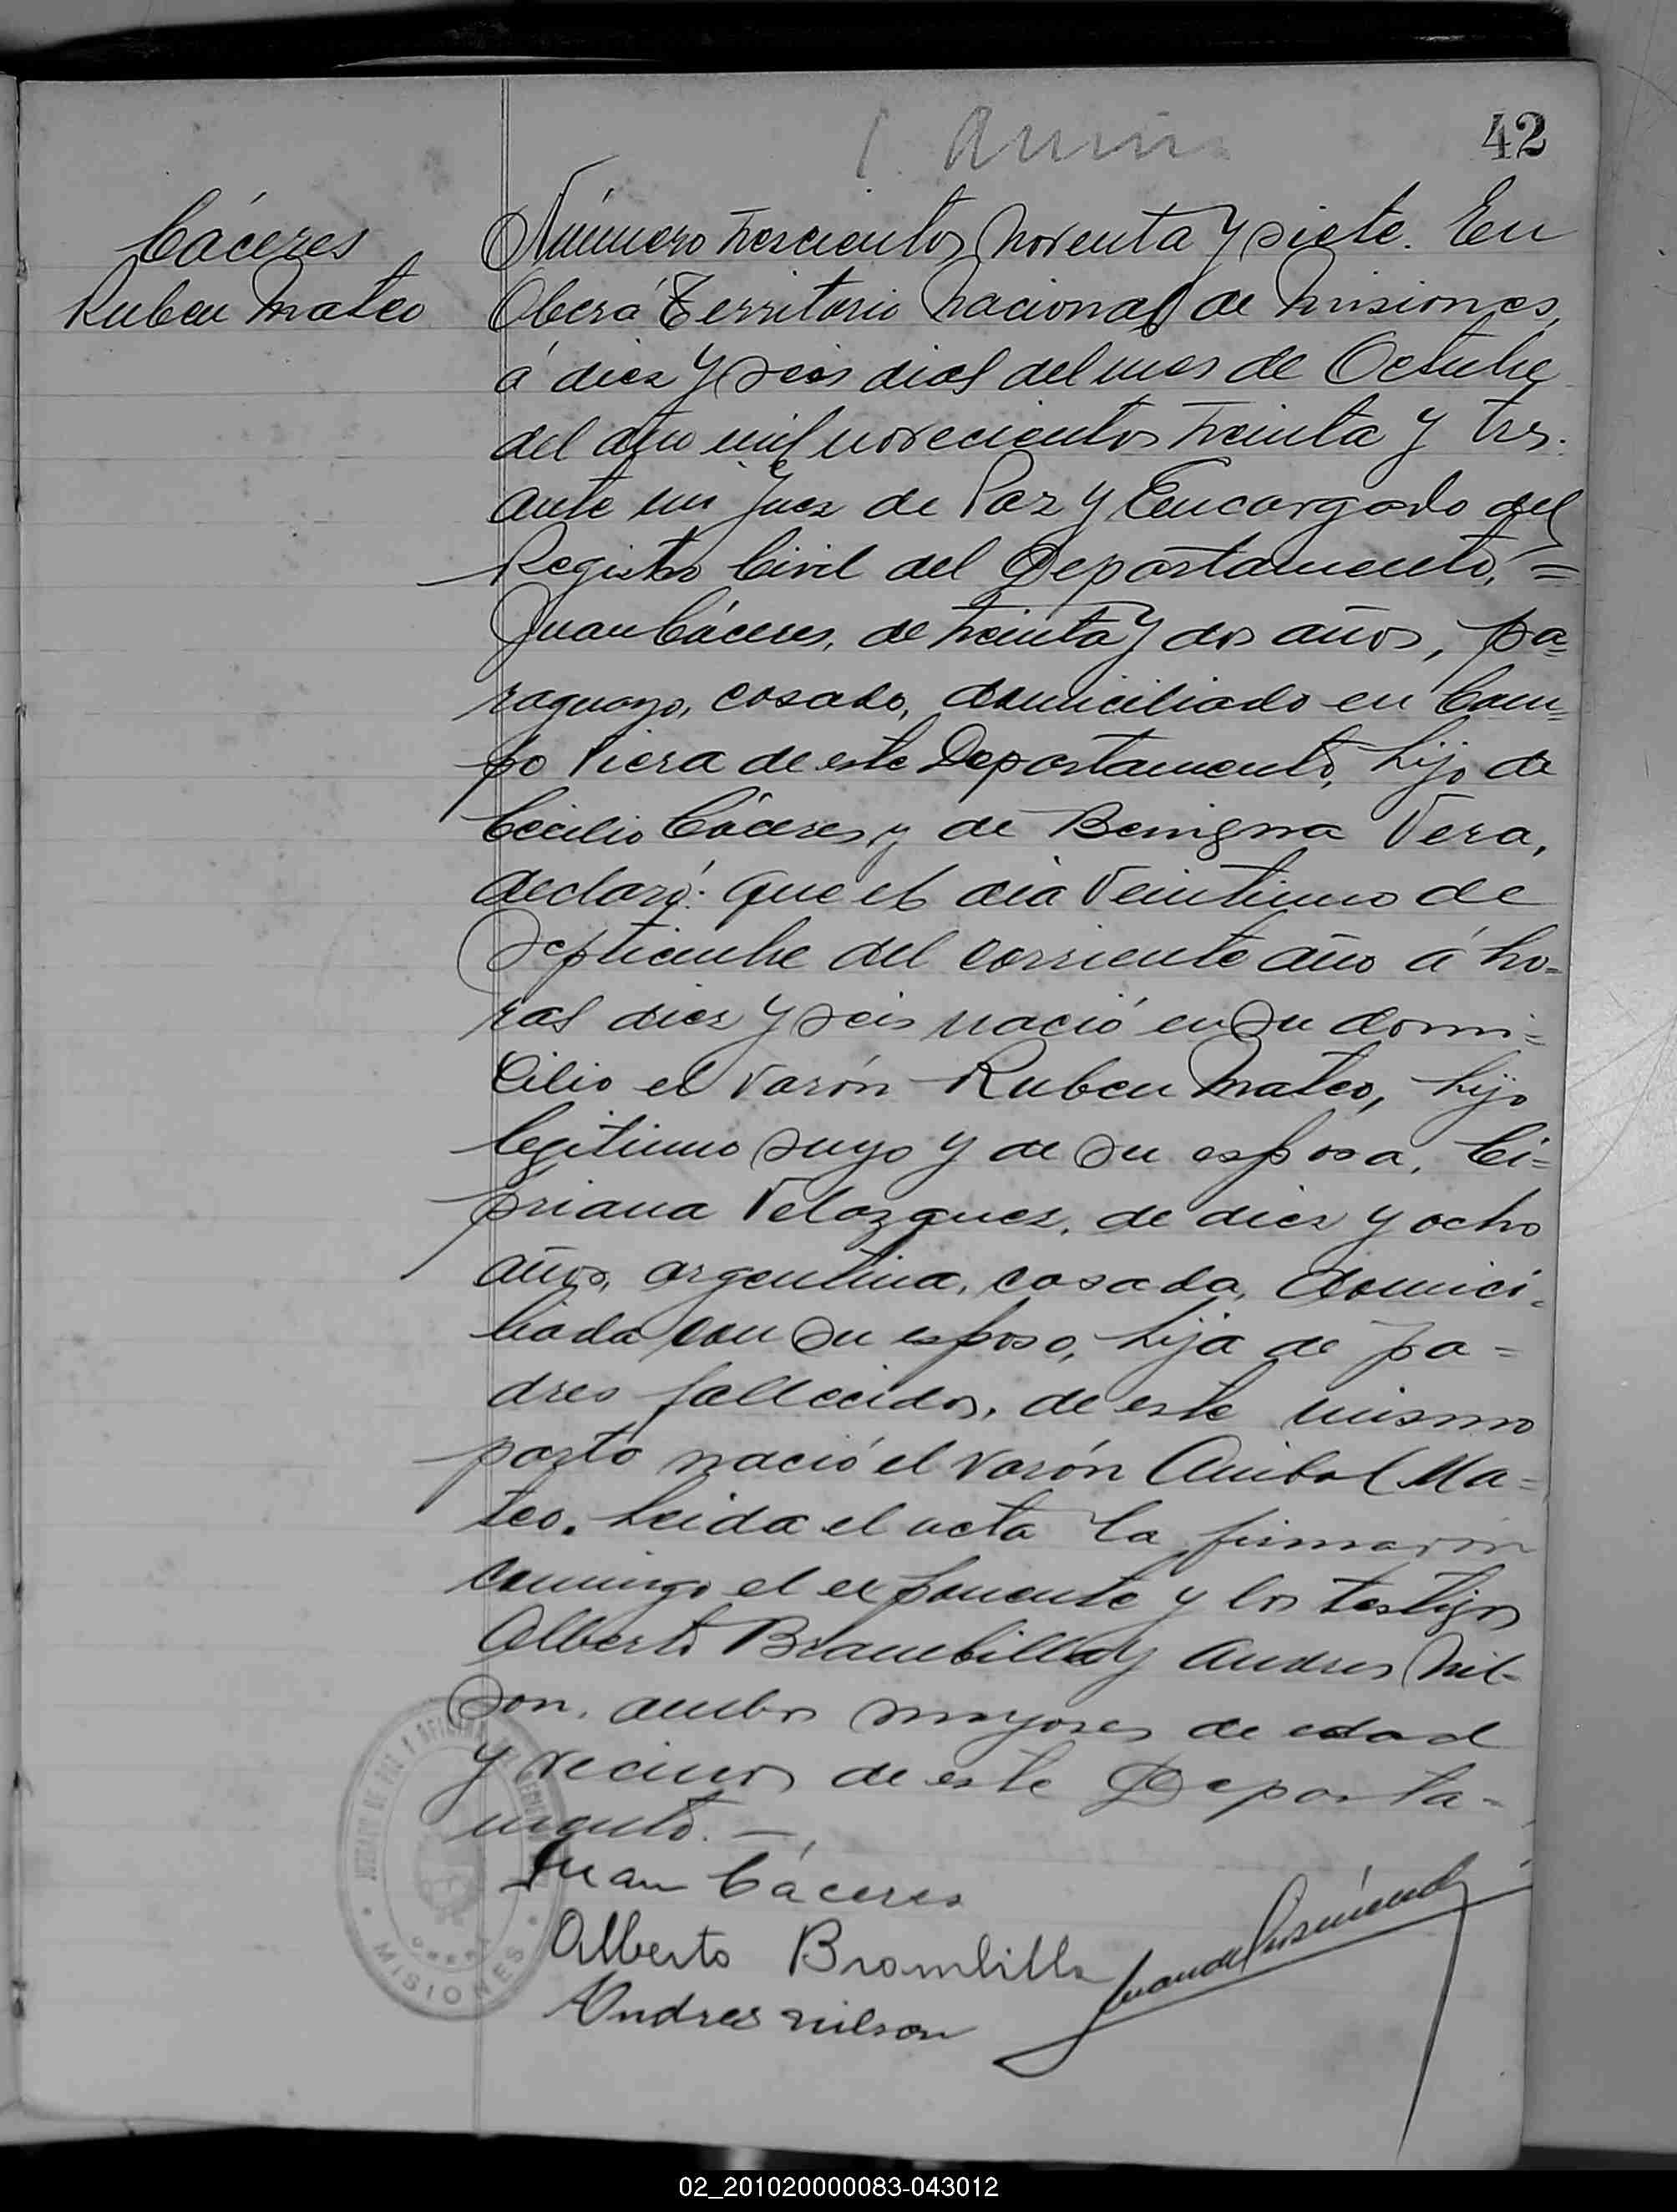 42
Cáceres
Ruben Mateo
Número trescientos noventa y siete. En
Oberá Territorio Nacional de Misiones,
á diez y seis dias del mes de Octubre
del año mil novecientos treinta y tres.
ante mi Juez de Paz y Encargado del
Registro Civil del Departamento, =
Juan Cáceres, de treinta y dos años, pa=
raguayo, casado, domiciliado en Cam=
po Viera de este Departamento, hijo de
Cecilio Cáceres y de Benigna Vera,
declaró: que el dia veintiuno de
Septiembre del corriente año á ho=
ras diez y seis nació en su domi=
cilio el varón Ruben Mateo, hijo
legitimo suyo y de su esposa, Ci=
priana Velazquez, de diez y ocho
años, argentina, casada, domici=
liada con su esposo, hija de pa=
dres fallecidos, de este mismo
parto nació el varón Anibal Ma=
teo. Leida el acta la firmaron
conmigo el exponente y los testigos
Alberto Brambilla y Andres Nil=
son, ambos mayores de edad
y vecinos de este Departa=
mento. —
Juan Cáceres
Alberto Brambilla
Andres Nilson
JUZGADO DE PAZ Y OFICINA DEL REGISTRO
OBERA
MISIONES
02_201020000083-043012